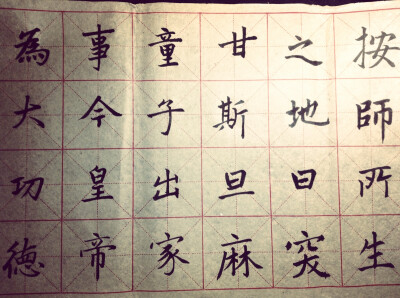 按師所生
之地曰突
甘斯旦麻
童子出家
事今皇帝
為大功徳